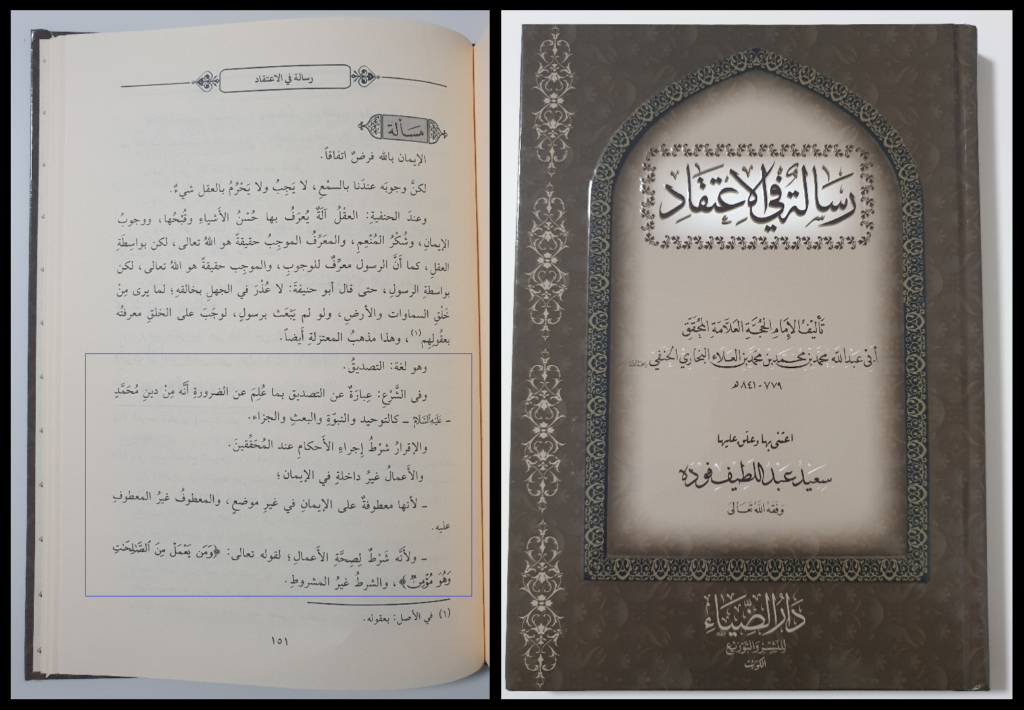 رسالة في الاعتقاد
مسألة
الإيمان بالله فرضٌ اتفاقاً.
لكنَّ وجوبَه عندَنا بالسمْعِ، لا يَجِبُ ولا يَحْرُمُ بالعقل شيءٌ.
وعندَ الحنفيةِ: العقْلُ آلَةٌ يُعرَفُ بها حُسْنُ الأَشياءِ وقُبْحُها، ووجوبُ
الإيمانِ، وشُكْرُ المُنْعِمِ، والمعَرِّفُ الموجِبُ حقيقةً هو اللهُ تعالى، لكن بواسِطَةِ
العقلِ، كما أَنَّ الرسول معرِّفٌ للوجوبِ، والموجِب حقيقةً هو اللهُ تعالى، لكن
بواسطةِ الرسولِ، حتى قال أبو حنيفةَ: لا عُذْرَ في الجهلِ بخالقهِ؛ لما يرى مِنْ
خَلْقِ السماوات والأرضِ، ولو لم يَبْعَث برسولٍ، لوجَبَ على الخلقِ معرفتُه
بعقُولهم(١)، وهذا مذهبُ المعتزلةِ أَيضاً.
وهو لغة: التصديقُ.
وفي الشَّرْعِ: عِبارَةٌ عن التصديق بما عُلِمَ عن الضرورةِ أَنَّه مِنْ دينِ مُحَمَّدٍ
ـ عَلَيْهِ السَّلَامُ ـ كالتوحيد والنبوّةِ والبعثِ والجزاء.
والإقرارُ شرْطُ إجراءِ الأَحكامِ عند المُحَقِّقينَ.
والأَعمالُ غيرُ داخلةٍ في الإيمان؛
ـ لأنها معطوفةٌ على الإيمانِ في غيرِ موضعٍ، والمعطوفُ غيرُ المعطوفِ
عليه.
ـ ولأَنَّه شَرْطٌ لِصِحَّةِ الأَعمالِ؛ لقوله تعالى: ﴿وَمَن يَعْمَلْ مِنَ ٱلصَّٰلِحَٰتِ
وَهُوَ مُؤْمِنٌ﴾، والشرطُ غيرُ المشروطِ.
(١) في الأصل: بعقوله.
١٥١
رسالة في الاعتقاد
تأليف الإمام الحجة العلامة المحقق
أبي عبد الله محمد بن محمد بن محمد بن العلاء البخاري الحنفي
٧٧٩-٨٤١ هـ
اعتنى بها وعلق عليها
سعيد عبد اللطيف فوده
وفقه الله تعالى
دار الضياء
للنشر والتوزيع
الكويت